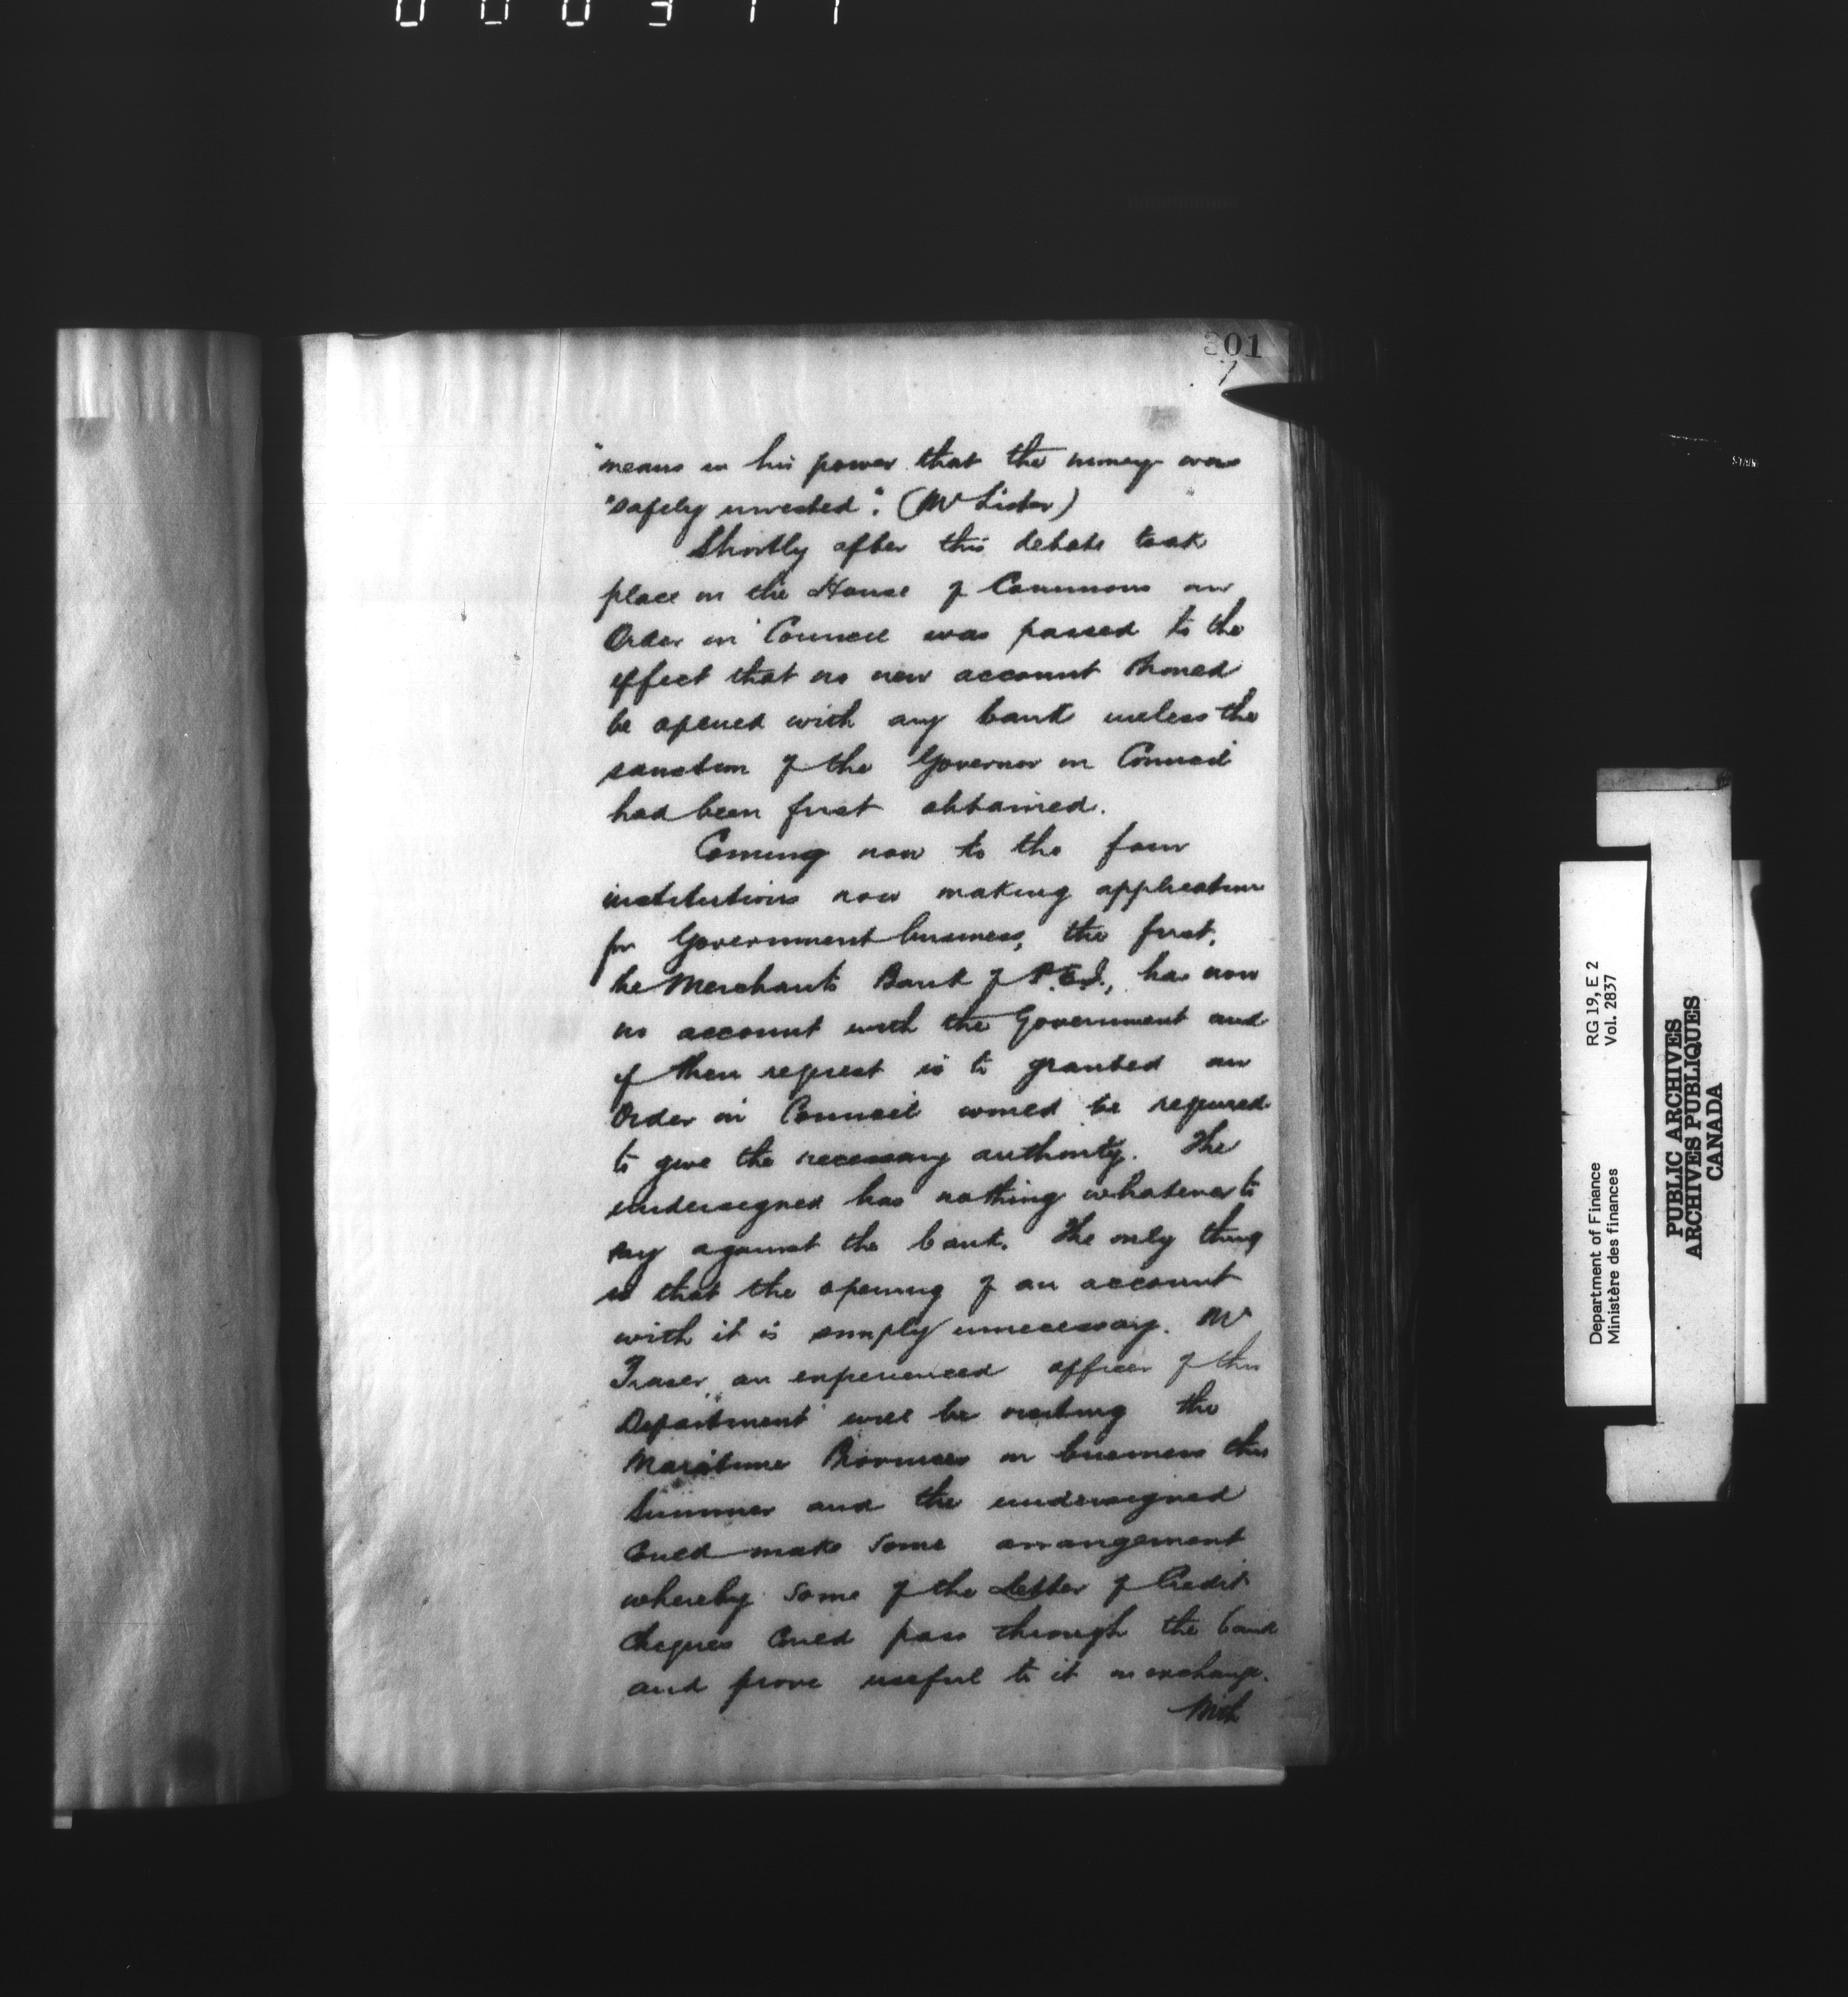 301
7
"means in his power that the money was
"safely invested". (Mr Lister)
Shortly after this debate took
place in the House of Commons an
Order in Council was passed to the
effect that no new account should
be opened with any bank unless the
sanction of the Governor in Council
had been first obtained.
Coming now to the four
institutions now making application
for Government business, the first,
the Merchants Bank of P.E.I., has now
no account with the Government and
if their request is to granted an
Order in Council would be required
to give the necessary authority. The
undersigned has nothing whatever to
say against the bank. The only thing
is that the opening of an account
with it is simply unnecessary. Mr
Fraser, an experienced officer of this
Department will be visiting the
Maritime Provinces on business this
Summer and the undersigned
could make some arrangement
whereby some of the Letter of Credit
cheques could pass through the bank
and prove useful to it in exchange.
With
Department of Finance RG 19, E 2
Ministère des finances Vol. 2837
PUBLIC ARCHIVES
ARCHIVES PUBLIQUES
CANADA